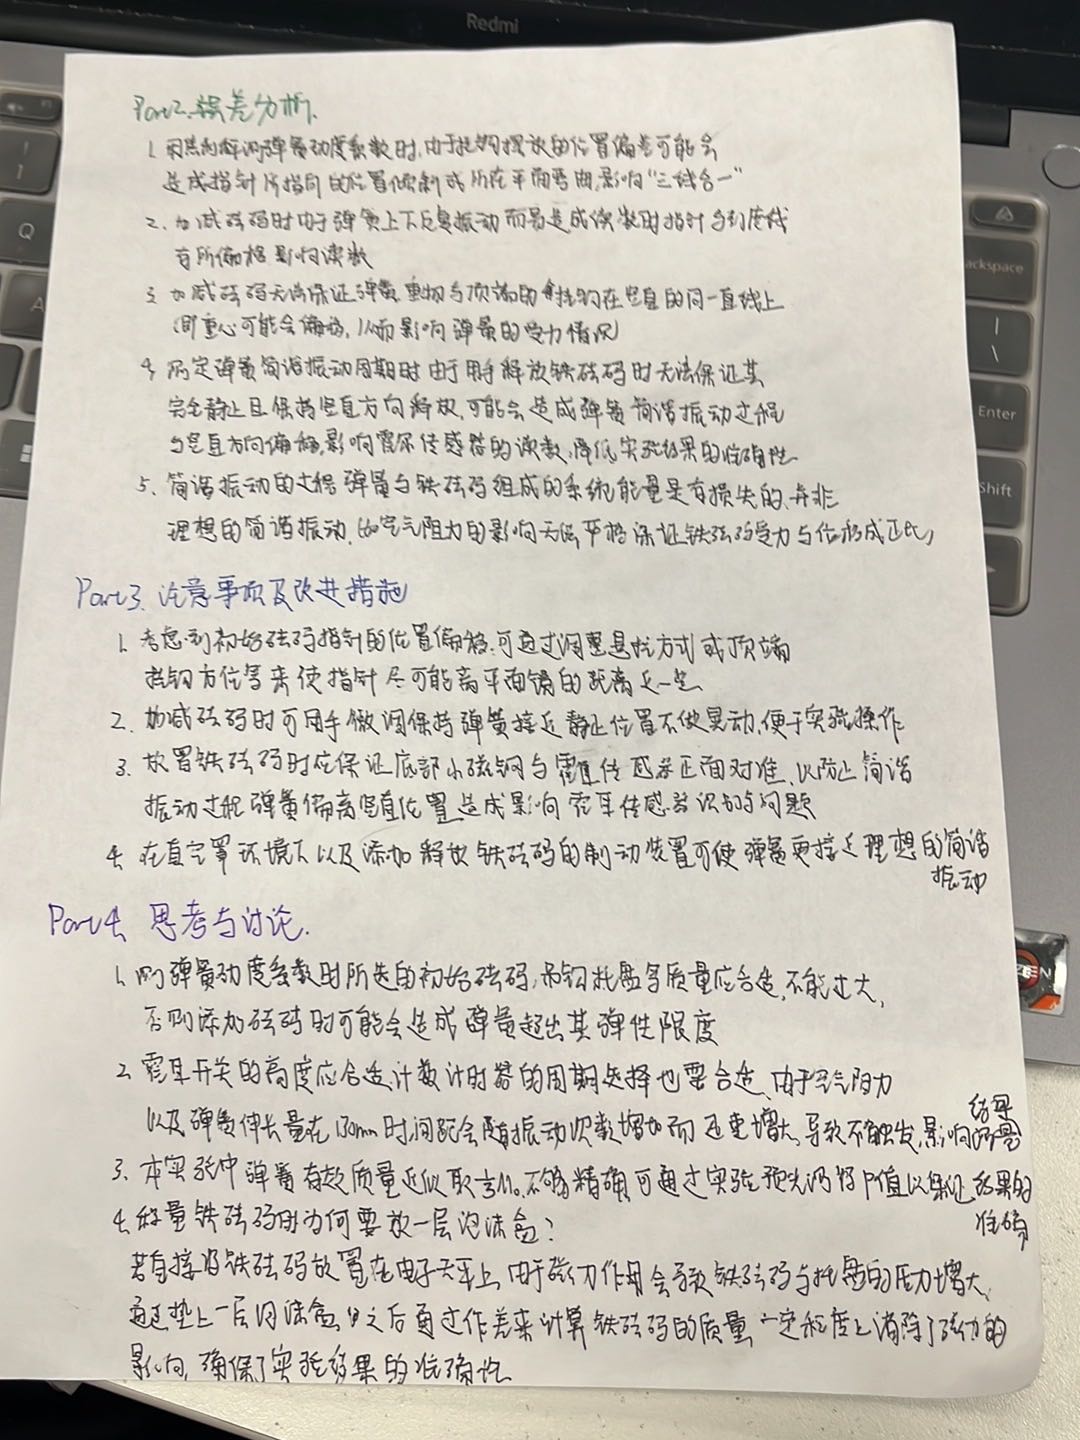 Redmi
Part2.误差分析.
1. 用焦利秤测弹簧劲度系数时,由于挂钩摆放的位置偏差可能会
造成指针所指向的位置倾斜或所在平面弯曲,影响“三线合一”
2. 加减砝码时由于弹簧上下反复振动而易造成读数时指针与刻度线
有所偏移影响读数
3. 加减砝码无法保证弹簧,重物与顶端的挂钩在竖直的同一直线上
(即重心可能会偏移,从而影响弹簧的受力情况)
4. 测定弹簧简谐振动周期时由于用手释放铁砝码时无法保证其
完全静止且保持竖直方向释放,可能会造成弹簧简谐振动过程
与竖直方向偏移,影响霍尔传感器的读数,降低实验结果的准确性
5. 简谐振动的过程弹簧与铁砝码组成的系统能量是有损失的,并非
理想的简谐振动,(如空气阻力的影响无法严格保证铁砝码受力与位移成正比)
Part3. 注意事项及改进措施
1. 考虑到初始砝码指针的位置偏移,可通过调整悬挂方式或顶端
挂钩方位等来使指针尽可能离平面镜的距离近一些
2. 加减砝码时可用手微调保持弹簧接近静止位置不做晃动,便于实验操作
3. 放置铁砝码时应保证底部小磁钢与霍耳传感器正面对准,以防止简谐
振动过程弹簧偏离竖直位置造成影响霍耳传感器识别与问题
4. 在真空罩环境下以及添加释放铁砝码的制动装置可使弹簧更接近理想的简谐
振动
Part4. 思考与讨论.
1. 测弹簧劲度系数时所选的初始砝码,吊钩托盘等质量应合适,不能过大,
否则添加砝码时可能会造成弹簧超出其弹性限度
2. 霍耳开关的高度应合适,计数计时器的周期选择也要合适,由于空气阻力
以及弹簧伸长量在 时间 会随振动次数增加而 增大,导致不触发,影响结果
3. 本实验中弹簧有效质量近似取⅓M。不够精确,可通过实验预先测得P值以保证结果的
准确
4. 称量铁砝码时为何要放一层泡沫盒?
若直接将铁砝码放置在电子天平上,由于磁力作用会导致铁砝码与托盘的压力增大,
通过垫上一层泡沫盒,之后通过作差来计算铁砝码的质量,一定程度上消除了磁力的
影响,确保了实验结果的准确性